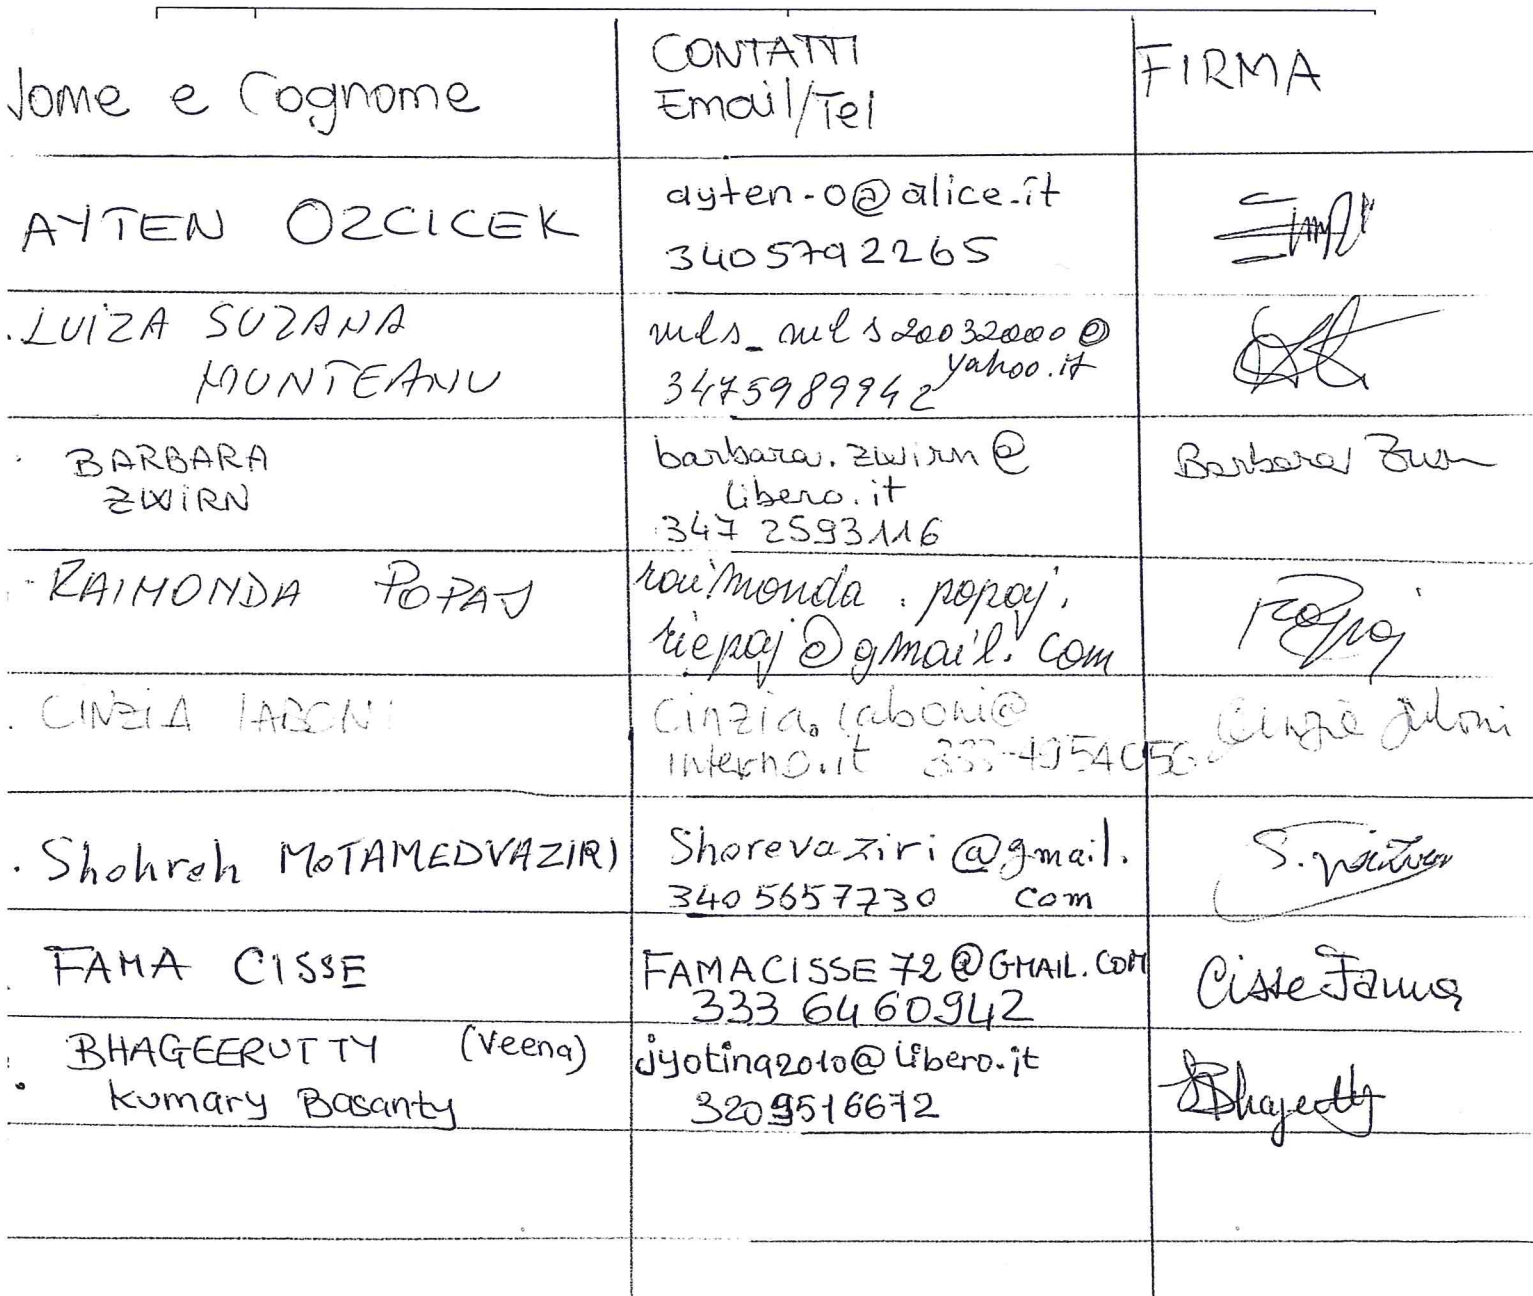 Nome e Cognome
CONTATTI
Email/Tel
FIRMA
AYTEN OZCICEK
ayten-o@alice.it
3405792265
LUIZA SUZANA
MUNTEANU
mls_mls20032000@
yahoo.it
3475989942
BARBARA
ZWIRN
barbara.zwirn@
libero.it
347 2593116
Barbara Zwirn
RAIMONDA POPAJ
raimonda.popaj.
riepaj@gmail.com
Popaj
CINZIA IABONI
Cinzia.iaboni@
interno.it
Cinzia Iaboni
Shohreh MOTAMEDVAZIRI
Shorevaziri@gmail.
3405657730 com
S.
FAMA CISSE
FAMACISSE72@GMAIL.COM
333 6460942
Cisse Fama
BHAGEERUTTY (Veena)
Kumary Basanty
jyotina2010@libero.it
3209516672